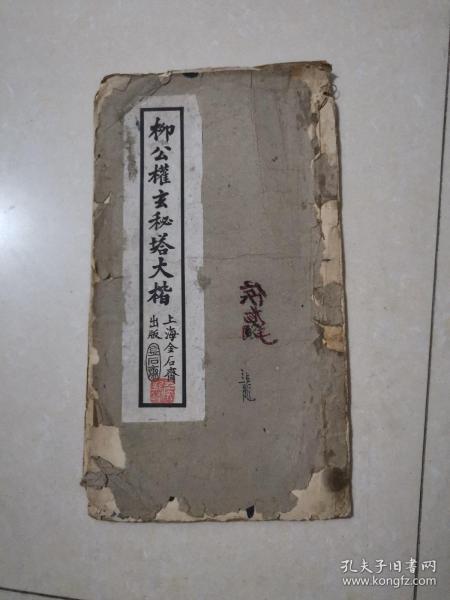 柳公權玄秘塔大楷
上海金石齋
出版
孔夫子旧书网
www.kongfz.com